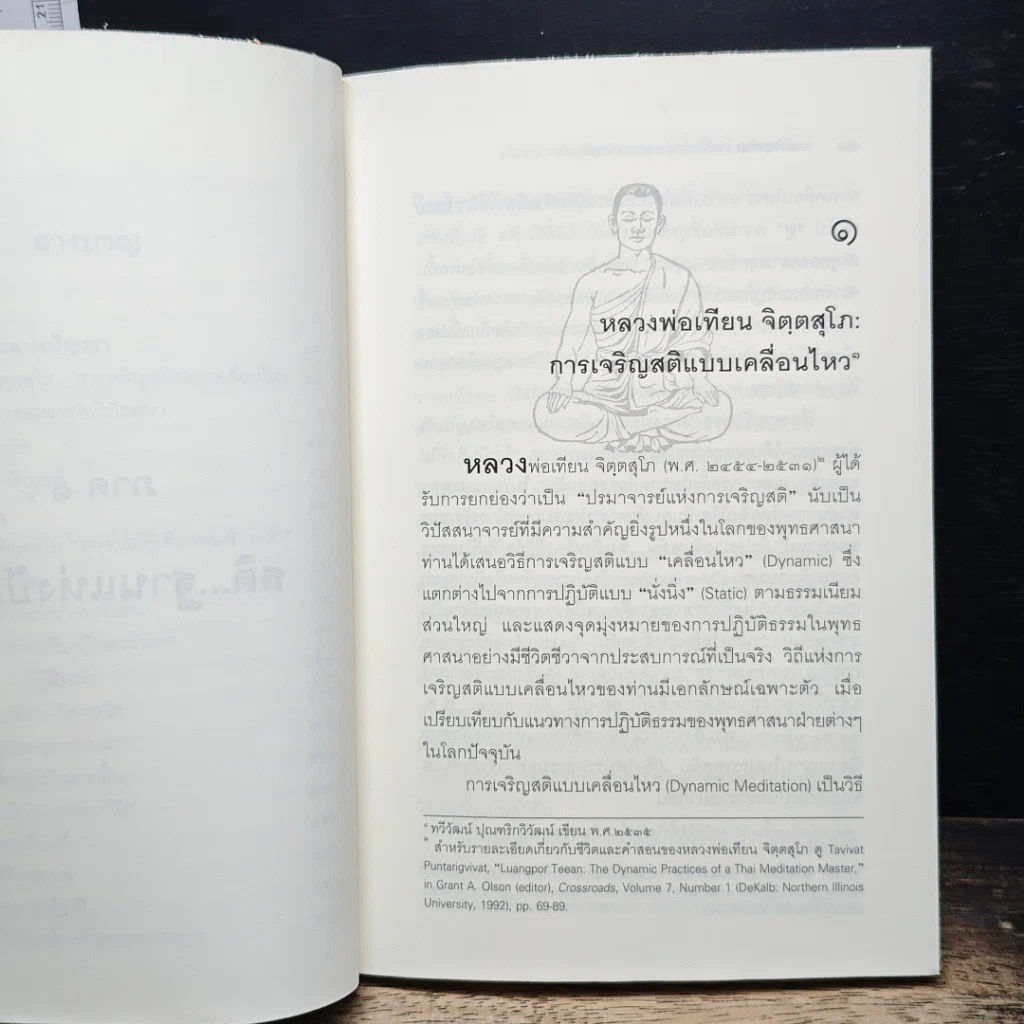 21
๑
หลวงพ่อเทียน จิตฺตสุโภ:
การเจริญสติแบบเคลื่อนไหว๑
หลวงพ่อเทียน จิตฺตสุโภ (พ.ศ. ๒๔๕๔-๒๕๓๑)๒ ผู้ได้
รับการยกย่องว่าเป็น “ปรมาจารย์แห่งการเจริญสติ” นับเป็น
วิปัสสนาจารย์ที่มีความสำคัญยิ่งรูปหนึ่งในโลกของพุทธศาสนา
ท่านได้เสนอวิธีการเจริญสติแบบ “เคลื่อนไหว” (Dynamic) ซึ่ง
แตกต่างไปจากการปฏิบัติแบบ “นั่งนิ่ง” (Static) ตามธรรมเนียม
ส่วนใหญ่ และแสดงจุดมุ่งหมายของการปฏิบัติธรรมในพุทธ
ศาสนาอย่างมีชีวิตชีวาจากประสบการณ์ที่เป็นจริง วิถีแห่งการ
เจริญสติแบบเคลื่อนไหวของท่านมีเอกลักษณ์เฉพาะตัว เมื่อ
เปรียบเทียบกับแนวทางการปฏิบัติธรรมของพุทธศาสนาฝ่ายต่างๆ
ในโลกปัจจุบัน
การเจริญสติแบบเคลื่อนไหว (Dynamic Meditation) เป็นวิธี
๑ ทวีวัฒน์ ปุณฑริกวิวัฒน์ เขียน พ.ศ.๒๕๓๕
๒ สำหรับรายละเอียดเกี่ยวกับชีวิตและคำสอนของหลวงพ่อเทียน จิตฺตสุโภ ดู Tavivat
Puntarigvivat, “Luangpor Teean: The Dynamic Practices of a Thai Meditation Master,”
in Grant A. Olson (editor), Crossroads, Volume 7, Number 1 (DeKalb: Northern Illinois
University, 1992), pp. 69-89.